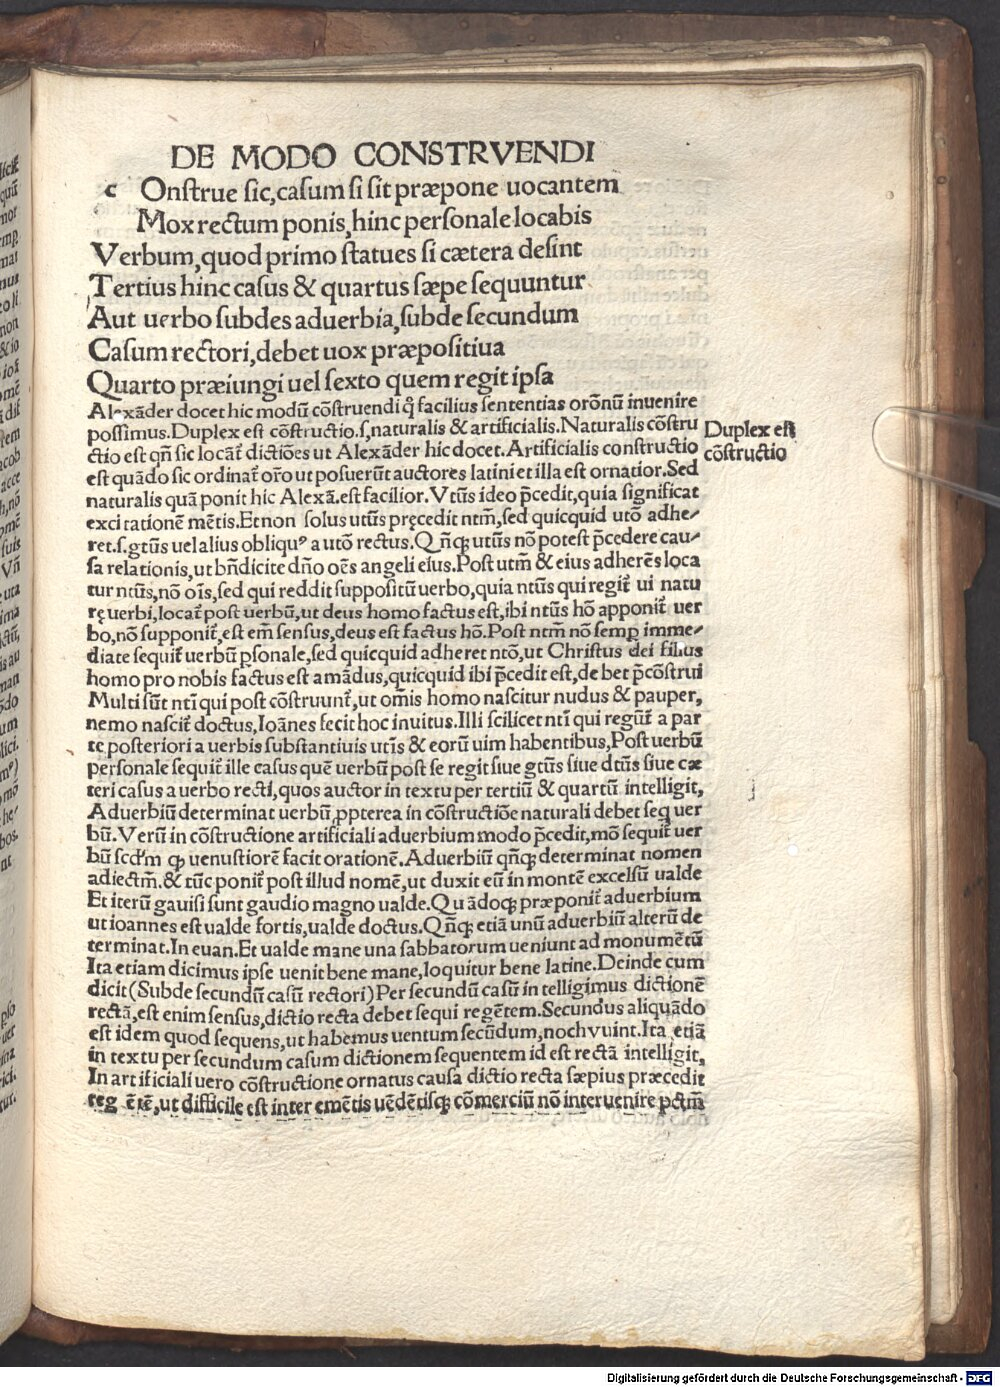 DE MODO CONSTRVENDI
c Onstrue sic,casum si sit præpone uocantem
Mox rectum ponis,hinc personale locabis
Verbum,quod primo statues si cætera desint
Tertius hinc casus & quartus sæpe sequuntur
Aut uerbo subdes aduerbia,subde secundum
Casum rectori,debet uox præpositiua
Quarto præiungi uel sexto quem regit ipsa
Alexāder docet hic modū cōstruendi ꝙ facilius sententias orōnū inuenire
possimus.Duplex est cōstructio.s,naturalis & artificialis.Naturalis cōstru
ctio est qñ sic locat᷑ dictiões ut Alexāder hic docet.Artificialis constructio
est quādo sic ordinat᷑ orō ut posuerūt auctores latini et illa est ornatior.Sed
naturalis quā ponit hic Alexā.est facilior.Vtūs ideo p̄cedit,quia significat
exci tationē mētis.Et non solus utūs pręcedit ntm̄,sed quicquid utō adhe⸗
ret.s.gtūs uel alius obliquꝰ a utō rectus.Qñꝗ utūs nō potest p̄cedere cau⸗
sa relationis,ut bn̄dicite dn̄o oēs angeli eius.Post utm̄ & eius adherēs loca
tur ntūs,nō oīs,sed qui reddit suppositū uerbo,quia ntūs qui regit᷑ ui natu
rę uerbi,locat᷑ post uerbū,ut deus homo factus est,ibi ntūs hō apponit᷑ uer
bo,nō supponit᷑,est em̄ sensus,deus est factus hō.Post ntm̄ nō semp imme⸗
diate sequit᷑ uerbū ꝑsonale,sed quicquid adheret ntō,ut Christus dei filius
homo pro nobis factus est amādus,quicquid ibi p̄cedit est,de bet p̄cōstrui
Multi sūt ntī qui post cōstruunt᷑,ut om̄is homo nascitur nudus & pauper,
nemo nascit᷑ doctus,Ioānes fecit hoc inuitus.Illi scilicet ntī qui regūt᷑ a par
te posteriori a uerbis substantiuis utīs & eorū uim habentibus,Post uerbū
personale sequit᷑ ille casus quē uerbū post se regit siue gtūs siue dtūs siue cæ
teri casus a uerbo recti,quos auctor in textu per tertiū & quartū intelligit,
Aduerbiū determinat uerbū,ꝓpterea in cōstructiõe naturali debet seq uer
bū.Verū in cōstructione artificiali aduerbium modo p̄cedit,mō sequit᷑ uer
bū scd̄m ꝙ uenustiorē facit orationē.Aduerbiū qñꝗ determinat nomen
adiectm̄.& tūc ponit᷑ post illud nomē,ut duxit eū in montē excelsū ualde
Et iterū gauisi sunt gaudio magno ualde.Quādoꝗ præponit᷑ aduerbium
ut ioannes est ualde fortis,ualde doctus.Qñꝗ etiā unū aduerbiū alterū de
terminat.In euan.Et ualde mane una sabbatorum ueniunt ad monumētū
Ita etiam dicimus ipse uenit bene mane,loquitur bene latine.Deinde cum
dicit(Subde secundū casū rectori)Per secundū casū in telligimus dictionē
rectā,est enim sensus,dictio recta debet sequi regētem.Secundus aliquādo
est idem quod sequens,ut habemus uentum secūdum,noch vuint.Ita etiā
in textu per secundum casum dictionem sequentem id est rectā intelligit,
In art ificiali uero cōstructione ornatus causa dictio recta sæpius præcedit
reg ētē,ut difficile est inter emētis uēdētisꝗ cōmerciū nō interuenire pctm̄
Duplex est
cōstructio
Digitalisierung gefördert durch die Deutsche Forschungsgemeinschaft - DFG